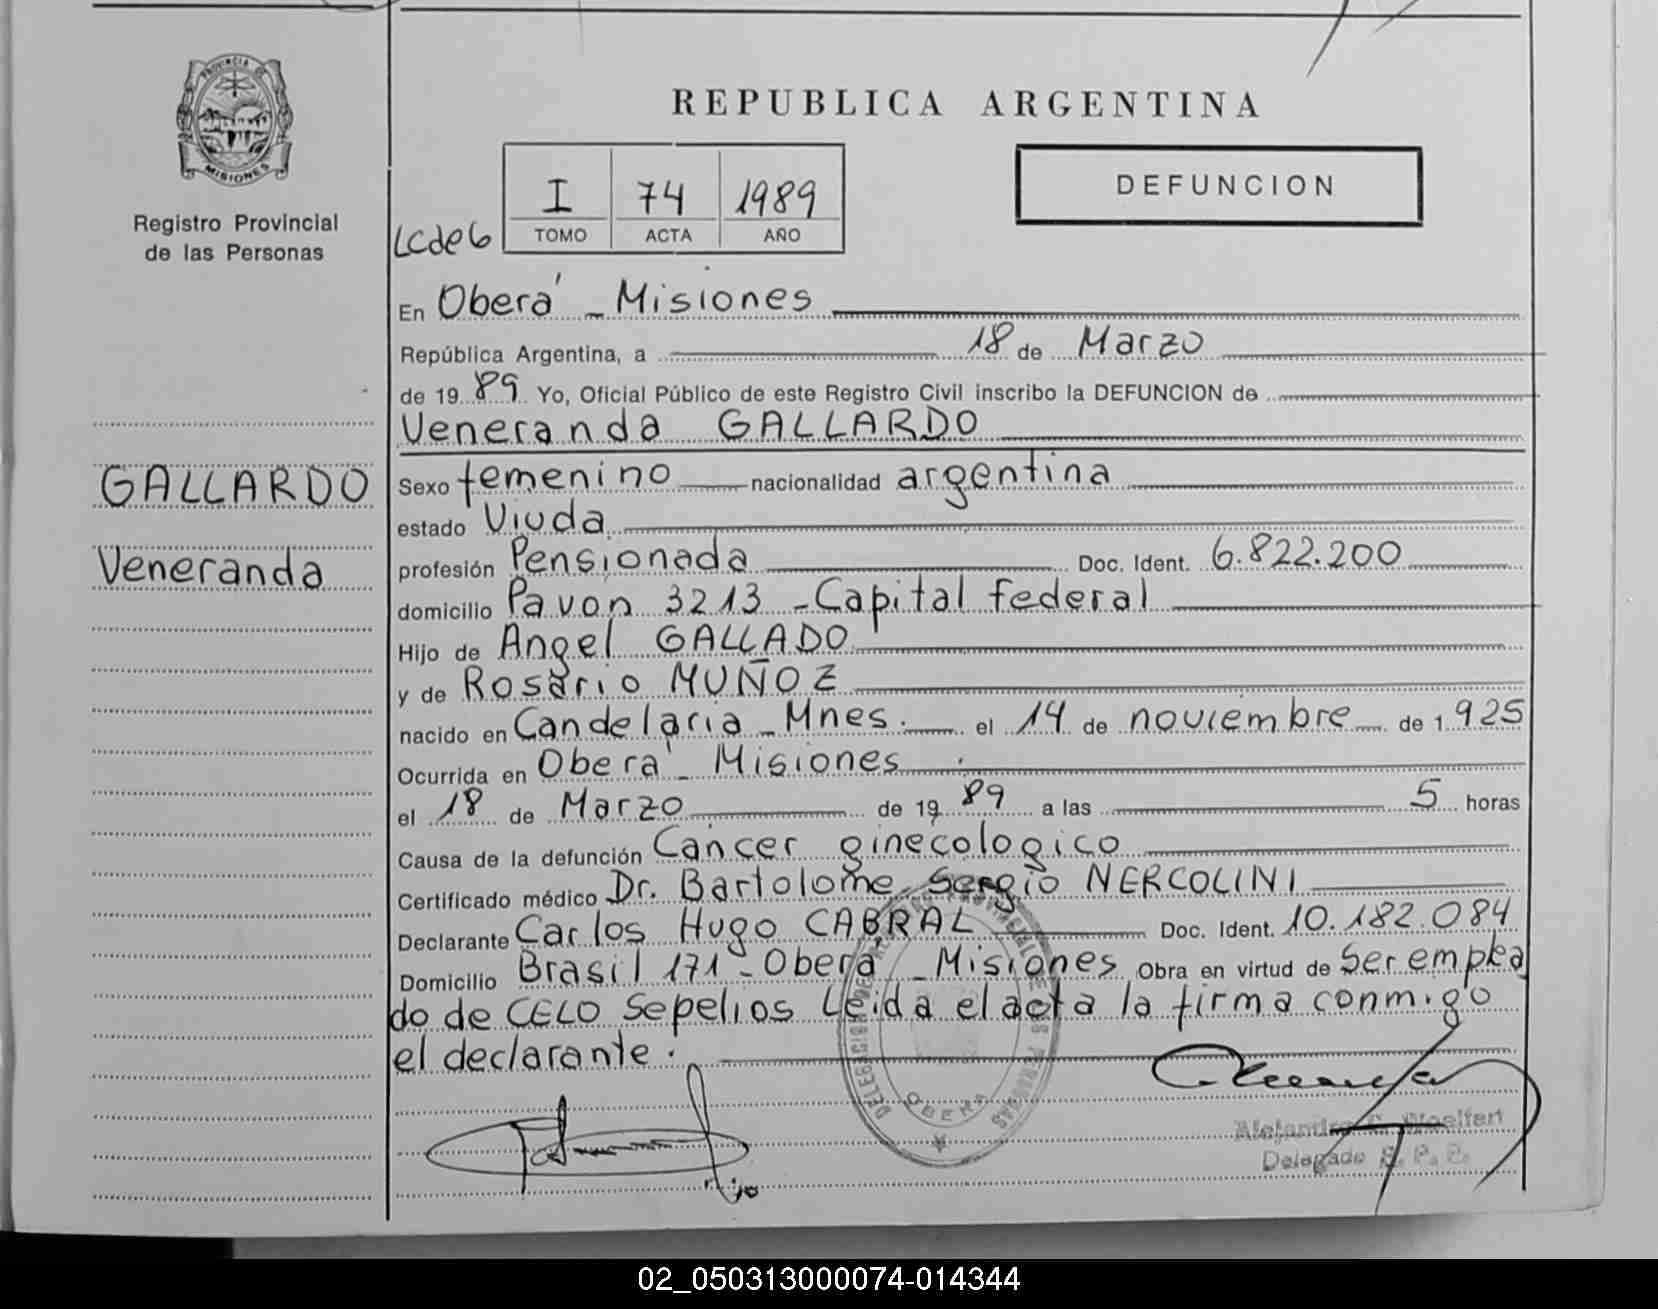 PROVINCIA DE
MISIONES
Registro Provincial
de las Personas
GALLARDO
Veneranda
REPUBLICA ARGENTINA
I 74 1989
TOMO ACTA AÑO
DEFUNCION
En Oberá - Misiones
República Argentina, a 18 de Marzo
de 19 89 Yo, Oficial Público de este Registro Civil inscribo la DEFUNCION de
Veneranda GALLARDO
Sexo femenino nacionalidad argentina
estado Viuda
profesión Pensionada Doc. Ident. 6.822.200
domicilio Pavon 3213 - Capital federal
Hijo de Angel GALLADO
y de Rosario MUÑOZ
nacido en Candelaria - Mnes. el 14 de noviembre de 1.925
Ocurrida en Oberá - Misiones
el 18 de Marzo de 19 89 a las 5 horas
Causa de la defunción Cáncer ginecologico
Certificado médico Dr. Bartolome Sergio NERCOLINI
Declarante Carlos Hugo CABRAL Doc. Ident. 10.182.084
Domicilio Brasil 171 - Oberá - Misiones Obra en virtud de Ser emplea
do de CELO Sepelios Leida el acta la firma conmigo
el declarante.
OBERA
Delegado R. P. P.
02_050313000074-014344